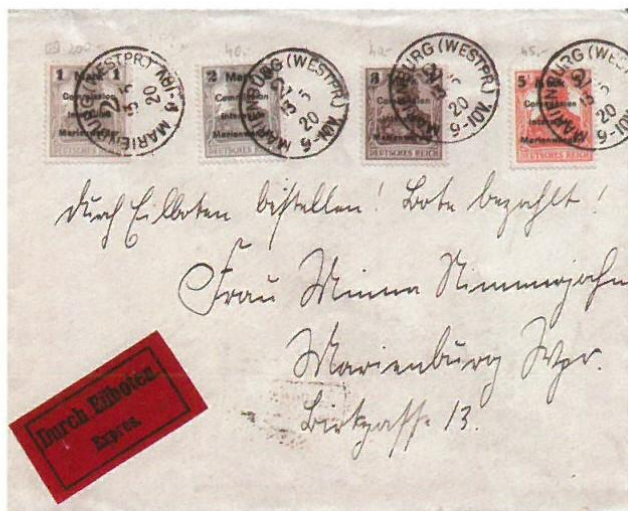 200.- 40.- 40.- 45.-
1 Mark 1
Commission
Interalliée
Marienwerder
DEUTSCHES REICH
MARIENBURG (WESTPR)
20
9-10V.
2 Mark
Commission
Marienwerder
DEUTSCHES REICH
MARIENBURG (WESTPR)
20
9-10V.
3
Commission
Marienwerder
DEUTSCHES REICH
MARIENBURG (WESTPR.)
20
9-10V.
5
Commission
Marienwerder
DEUTSCHES REICH
MARIENBURG (WESTPR.)
20
9-10V.
Durch Eilboten bestellen! Bote bezahlt!
Frau Minna Nimmerjahn
Marienburg Wpr.
13.
Durch Eilboten.
Expres.